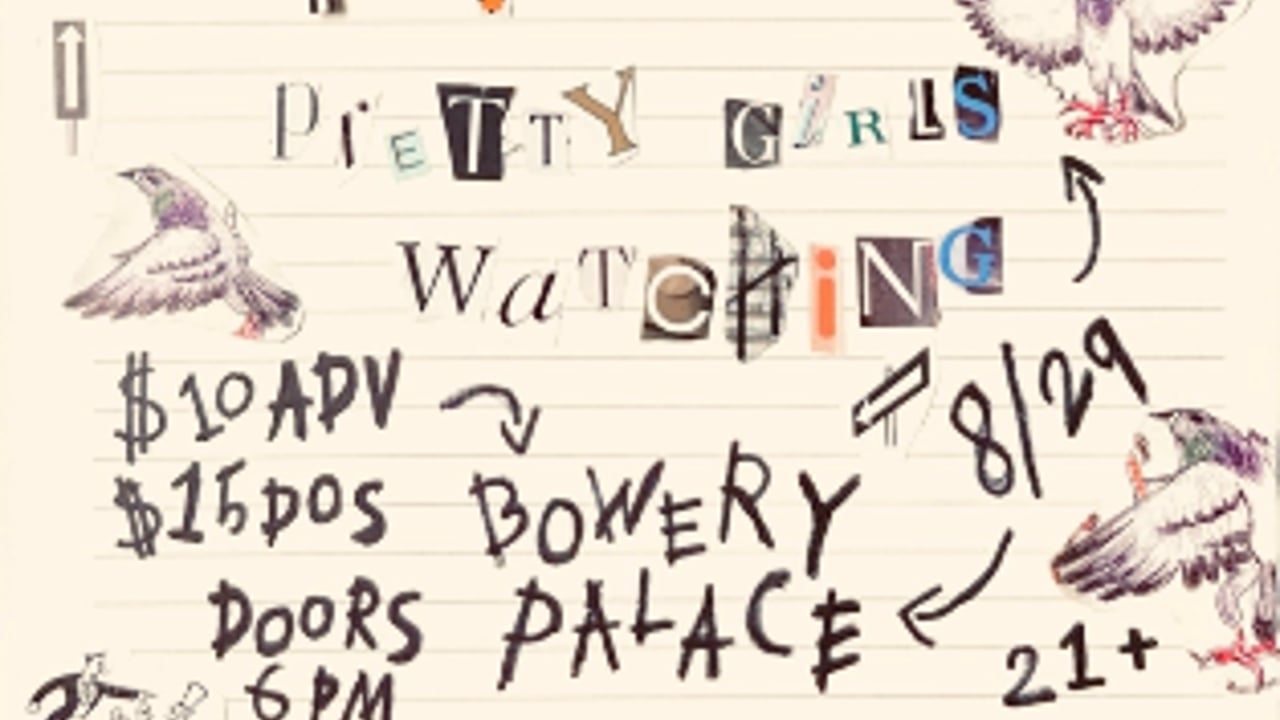 PrETTY GiRLS
WaTCHiNG
$10 ADV
8/29
$15 DOS
BOWERY
PALACE
DOORS
6 PM
21+